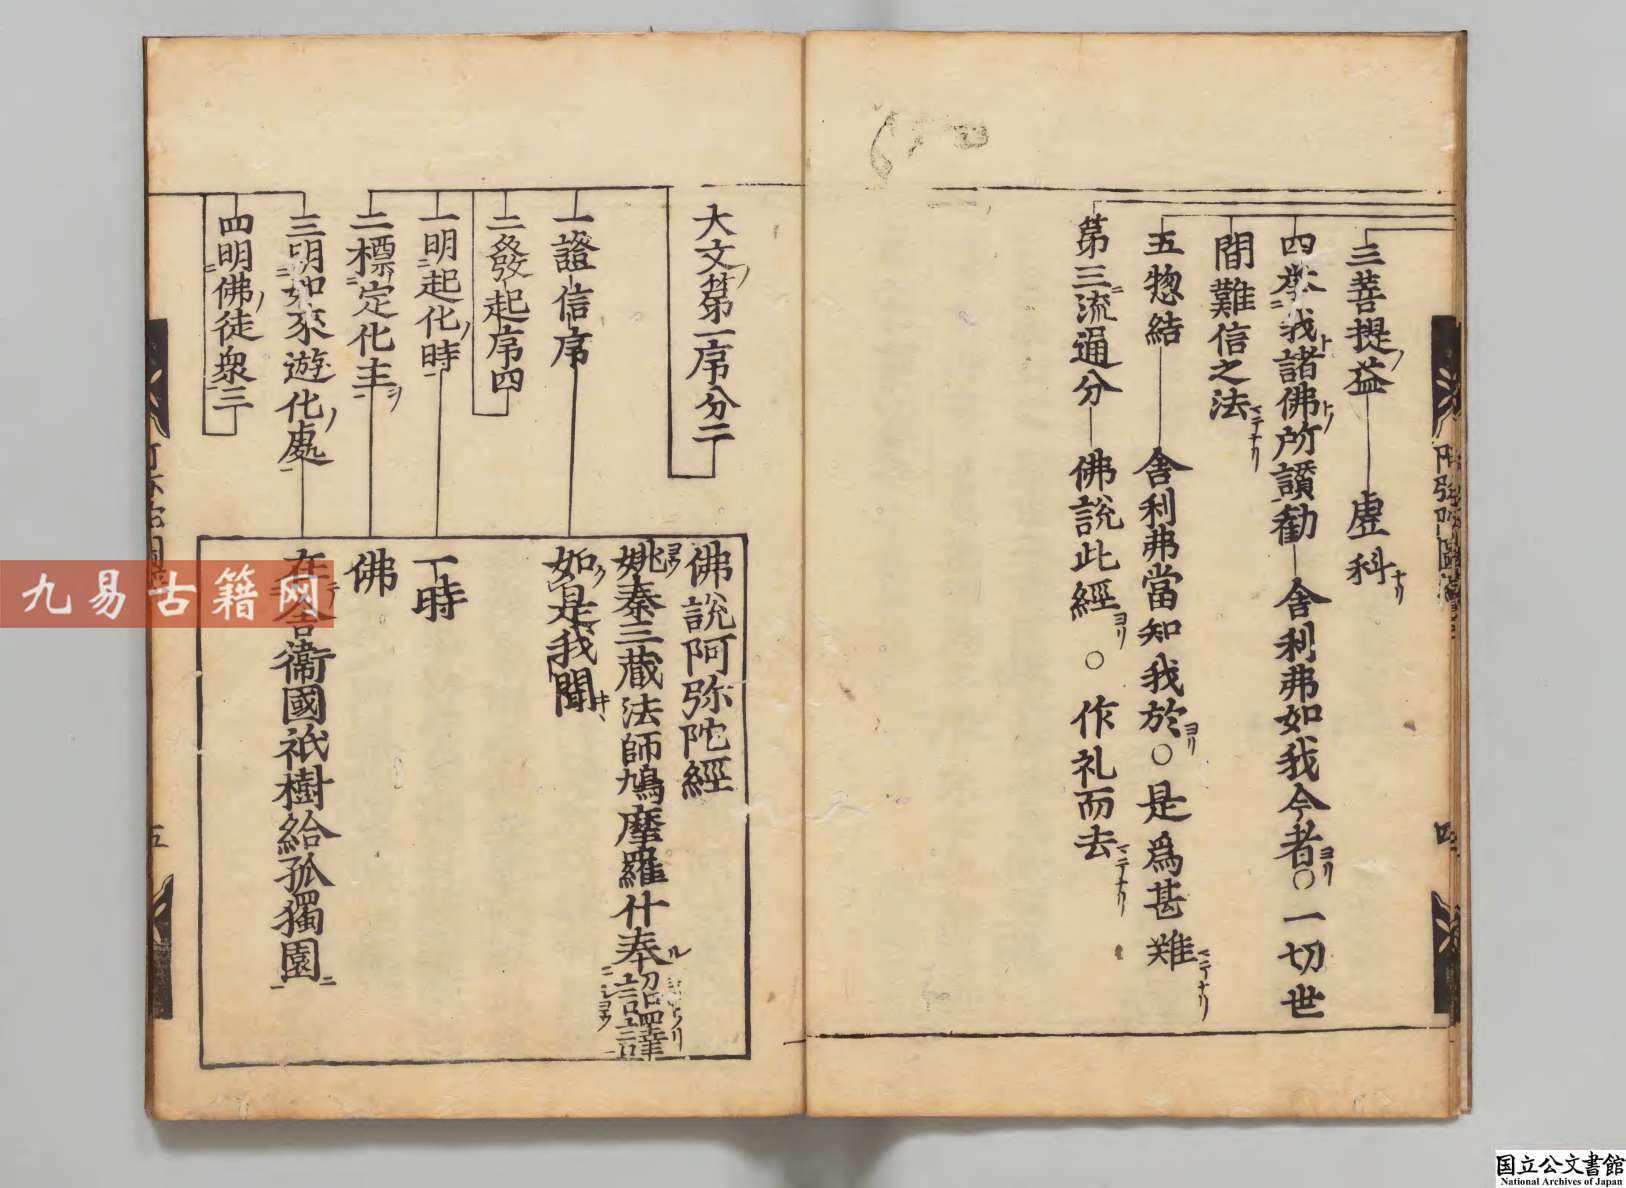 三菩提益 虚科ナリ
四挙我諸佛所讃勧 舎利弗如我今者ヨリ○一切世
間難信之法マテナリ
五惣結 舎利弗當知我於ヨリ○是爲甚難マテナリ
第三流通分 佛説此經ヨリ○作礼而去マテナリ
大文第一序分二
佛説阿弥陀經
姚秦三蔵法師鳩摩羅什奉詔譯
一證信序 如是我聞
二發起序四
一明起化時 一時
二標定化主 佛
三明如來遊化處 在舎衞國祇樹給孤獨園
四明佛徒衆三
五
四
九易古籍网
国立公文書館
National Archives of Japan